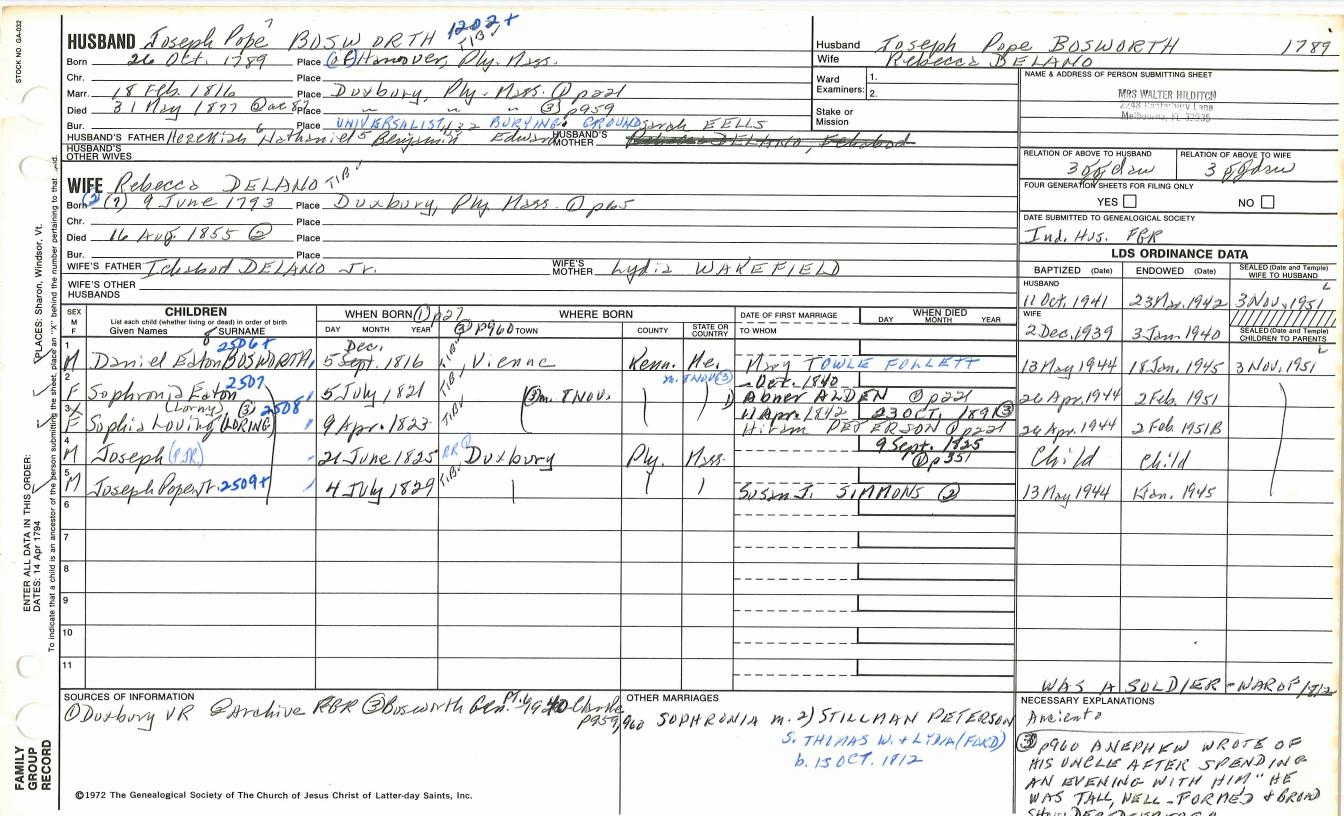 STOCK NO. GA-032
HUSBAND Joseph Pope 7 BOSWORTH 1202+ TIB
Born 26 Oct. 1789 Place (of) Hanover, Ply. Mass.
Chr. Place
Marr. 18 Feb. 1816 Place Duxbury, Ply. Mass. ① p221
Died 31 May 1877 ② ae 87 Place " " " ③ p959
Bur. Place UNIVERSALIST BURYING GROUND Sarah EELLS
HUSBAND'S FATHER Hezekiah 6 Nathaniel 5 Benjamin Edward HUSBAND'S MOTHER DELANO, Ichabod
HUSBAND'S OTHER WIVES
WIFE Rebecca DELANO TIB
Born (2) (7) 9 June 1793 Place Duxbury, Ply. Mass. ① p65
Chr. Place
Died 16 Aug. 1855 ② Place
Bur. Place
WIFE'S FATHER Ichabod DELANO Jr. WIFE'S MOTHER Lydia WAKEFIELD
WIFE'S OTHER HUSBANDS
Husband Joseph Pope BOSWORTH 1789
Wife Rebecca DELANO
Ward Examiners: 1. 2.
Stake or Mission
NAME & ADDRESS OF PERSON SUBMITTING SHEET
MRS WALTER HILDITCH
2248 Canterbury Lane
Melbourne, FL 32935
RELATION OF ABOVE TO HUSBAND RELATION OF ABOVE TO WIFE
3 ggdau 3 ggdau
FOUR GENERATION SHEETS FOR FILING ONLY
YES NO
DATE SUBMITTED TO GENEALOGICAL SOCIETY
Ind. Hus. FGR
LDS ORDINANCE DATA
BAPTIZED (Date) ENDOWED (Date) SEALED (Date and Temple) WIFE TO HUSBAND
HUSBAND
11 Oct. 1941 23 Mar. 1942 3 Nov. 1951 L
WIFE
2 Dec. 1939 3 Jan. 1940 SEALED (Date and Temple) CHILDREN TO PARENTS
SEX M F CHILDREN WHEN BORN ① p27 WHERE BORN DATE OF FIRST MARRIAGE WHEN DIED
List each child (whether living or dead) in order of birth
Given Names SURNAME DAY MONTH YEAR ③ p960 TOWN COUNTY STATE OR COUNTRY TO WHOM DAY MONTH YEAR
1 M Daniel Eaton 8 BOSWORTH 2506+ 5 Dec. Sept. 1816 TIB Vienna Kenn. Me. Mary TOWLE FOLLETT 13 May 1944 18 Jan. 1945 3 Nov. 1951 L
2 F Sophronia Eaton 2507 5 July 1821 TIB ③ m. 8 NOV. m. 8 NOV ③ - Oct. 1840 Abner ALDEN ① p221 26 Apr. 1944 2 Feb. 1951
3 X F Sophia Loving (Lorny) ③ (LORING) 2508 9 Apr. 1823 TIB 11 Apr. 1842 23 OCT. 1891 ③ Hiram PETERSON ① p221 26 Apr. 1944 2 Feb. 1951B
4 M Joseph (PSR) 21 June 1825 Duxbury Ply. Mass 9 Sept. 1825 ① p351 Child Child
5 M Joseph Pope Jr. 2509+ 4 July 1829 TIB Susan J. SIMMONS ② 13 May 1944 Jan. 1945
6
7
8
9
10
11
ENTER ALL DATA IN THIS ORDER:
DATES: 14 Apr 1794 PLACES: Sharon, Windsor, Vt.
To indicate that a child is an ancestor of the person submitting the sheet, place an "X" behind the number pertaining to that child.
FAMILY GROUP RECORD
SOURCES OF INFORMATION
① Duxbury VR ② Archive FGR ③ Bosworth Gen. 1940 - Clarke p959, 960
OTHER MARRIAGES
SOPHRONIA m. 2) STILLMAN PETERSON
S. THOMAS W. + LYDIA (FORD)
b. 15 OCT. 1812
WAS A SOLDIER - WAR OF 1812
NECESSARY EXPLANATIONS
③ p960 A NEPHEW WROTE OF
HIS UNCLE AFTER SPENDING
AN EVENING WITH HIM "HE
WAS TALL, WELL-FORMED & BROAD
©1972 The Genealogical Society of The Church of Jesus Christ of Latter-day Saints, Inc.